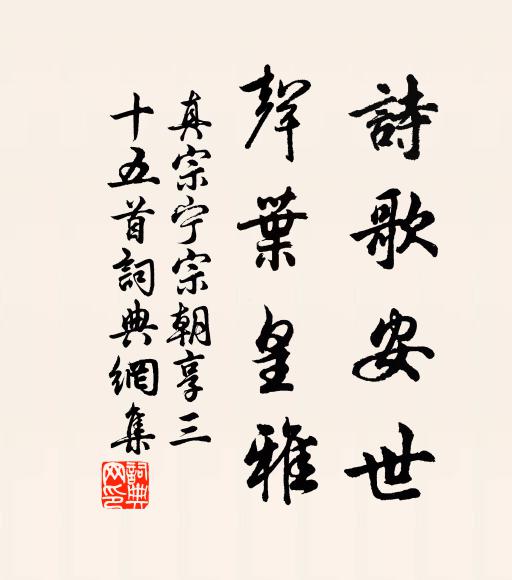 詩歌安世
聲葉皇雅
真宗宁宗朝享三
十五首詞典網集
詞典
网印